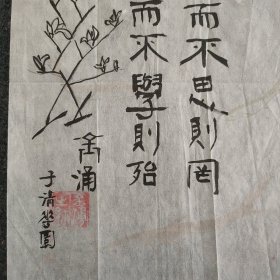 而不思則罔
而不學則殆
禹涌
于清學園